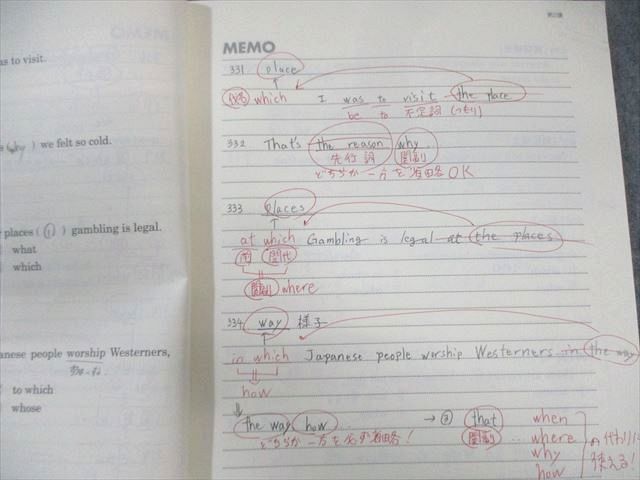 as to visit.
(why) we felt so cold.
places ( i ) gambling is legal.
what
which
anese people worship Westerners,
to which
whose
MEMO
331 place
which I was to visit the place
be to 不定詞
332 That's the reason why.
先行詞 関副
どちらか一方を省略OK
333 places
at which Gambling is legal at the places
前 関代
関副 where
334 way 様子
in which Japanese people worship Westerners in the way
how
the way how ...
どちらか一方を必ず省略!
→ ③ that when
関副 ... where
why
how
の代わりに
使える!